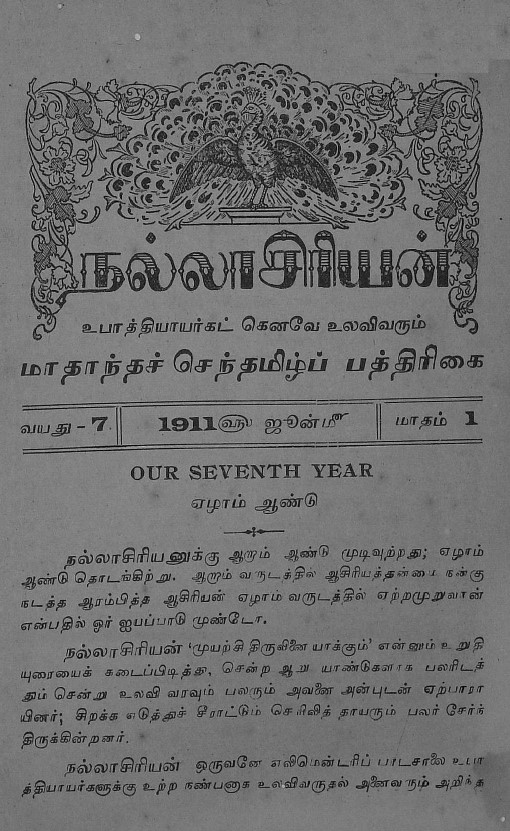 நல்லாசிரியன்
உபாத்தியாயர்கட் கெனவே உலவிவரும்
மாதாந்தச் செந்தமிழ்ப் பத்திரிகை
வயது - 7. 1911 ௵ ஜூன்௴ மாதம் 1
OUR SEVENTH YEAR
ஏழாம் ஆண்டு
நல்லாசிரியனுக்கு ஆறாம் ஆண்டு முடிவுற்றது; ஏழாம்
ஆண்டு தொடங்கிற்று. ஆறாம் வருடத்தில் ஆசிரியத்தன்மை நன்கு
நடத்த ஆரம்பித்த ஆசிரியன் ஏழாம் வருடத்தில் ஏற்றமுறுவான்
என்பதில் ஓர் ஐயப்பாடு முண்டோ.
நல்லாசிரியன் ‘முயற்சி திருவினை யாக்கும்’ என்னும் உறுதி
யுரையைக் கடைப்பிடித்து, சென்ற ஆறு யாண்டுகளாக பலரிடத்
தும் சென்று உலவி வரவும் பலரும் அவனை அன்புடன் ஏற்பாரா
யினர்; சிறக்க எடுத்துச் சீராட்டும் செவிலித் தாயரும் பலர் சேர்ந்
திருக்கின்றனர்.
நல்லாசிரியன் ஒருவனே எலிமென்டரிப் பாடசாலை உபா
த்தியாயர்களுக்கு உற்ற நண்பனாக உலவிவருதல் அனைவரும் அறிந்த